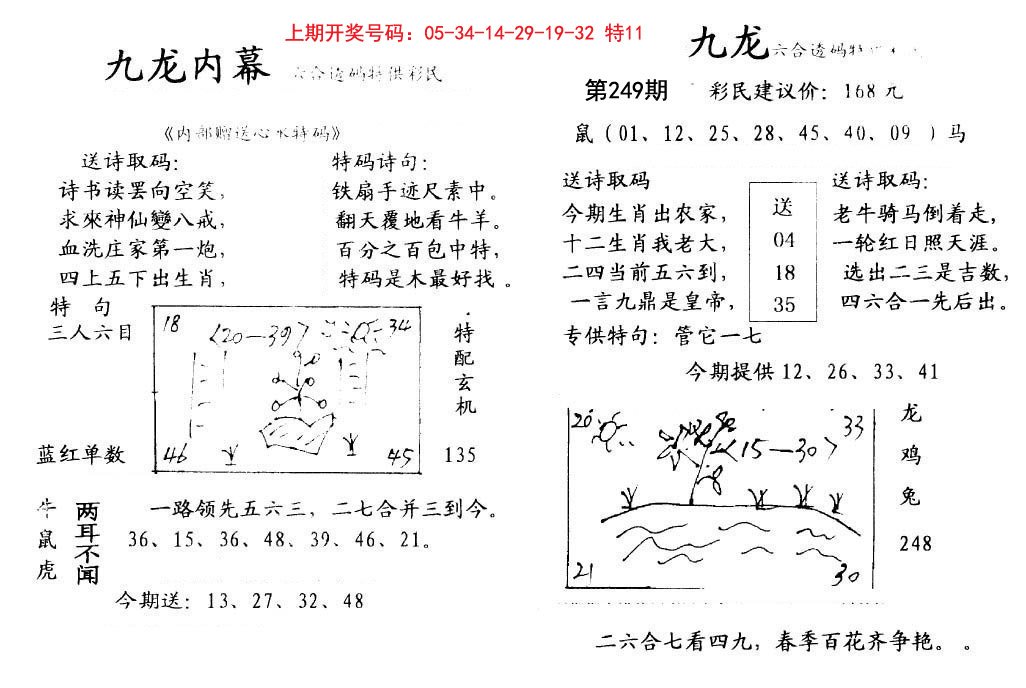 上期开奖号码：05-34-14-29-19-32 特11
九龙内幕 六合透码特供彩民
《内部赠送心水特码》
送诗取码：
诗书读罢向空笑，
求來神仙變八戒，
血洗庄家第一炮，
四上五下出生肖，
特码诗句：
铁扇手迹尺素中。
翻天覆地看牛羊。
百分之百包中特，
特码是木最好找。
特 句
三人六目
蓝红单数
18
〈20—39〉
34
46
45
特配玄机
135
牛
鼠
虎
两耳不闻
一路领先五六三，二七合并三到今。
36、15、36、48、39、46、21。
今期送：13、27、32、48
九龙 六合透码特
第249期 彩民建议价：168元
鼠（01、12、25、28、45、40、09 ）马
送诗取码
今期生肖出农家，
十二生肖我老大，
二四当前五六到，
一言九鼎是皇帝，
送
04
18
35
送诗取码：
老牛骑马倒着走，
一轮红日照天涯。
选出二三是吉数，
四六合一先后出。
专供特句：管它一七
今期提供12、26、33、41
20
33
〈15—30〉
21
30
龙
鸡
兔
248
二六合七看四九，春季百花齐争艳。。